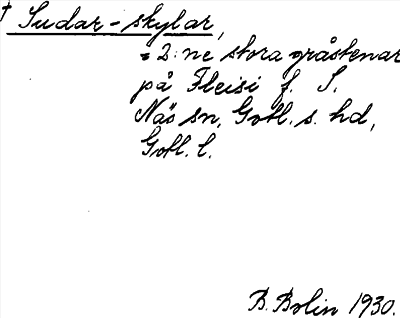 † Sudar-skylar,
= 2:ne stora gråstenar
på Fleisi f. S.
Näs sn, Gotl. s. hd,
Gotl. l.
B. Bolin 1930.